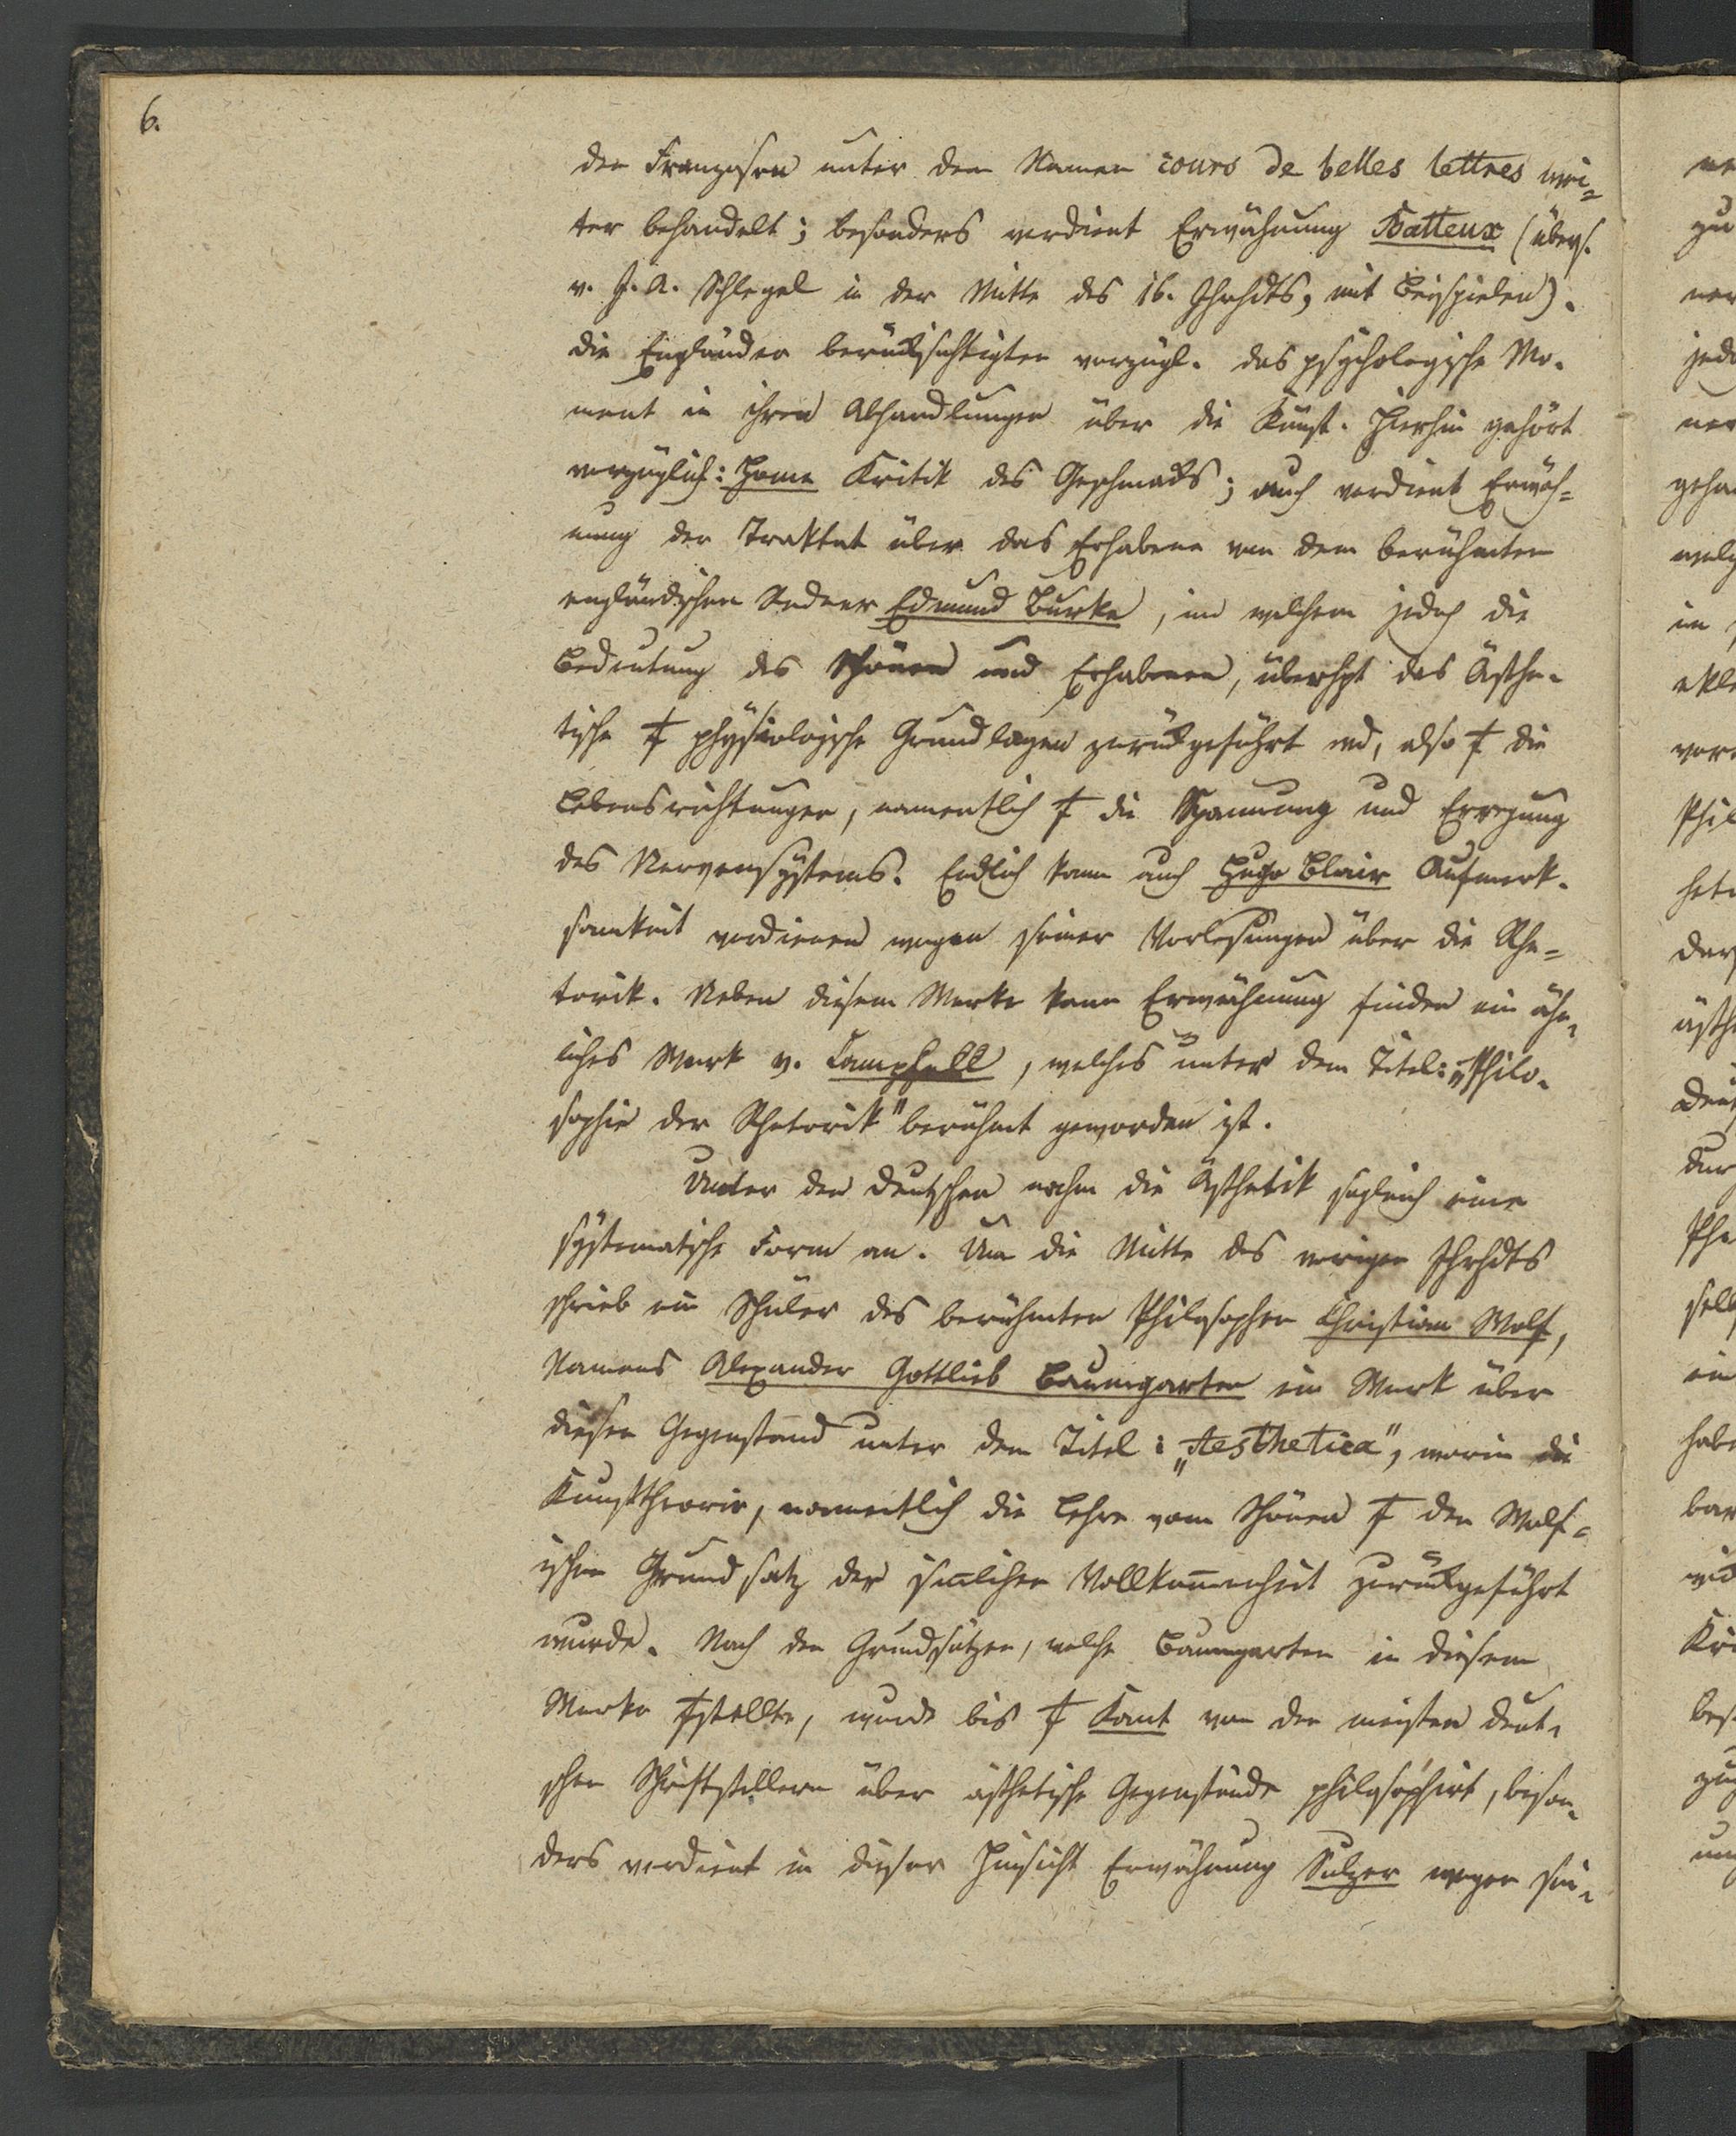 6.
den Franzosen unter dem Namen cours de belles lettres wei=
ter behandelt; besonders verdient Erwähnung Batteux (übers.
v. J. A. Schlegel in der Mitte des 16. Ihrhdts, mit Beispielen).
die Engländer berücksichtigten vorzügl. das psychologische Mo-
ment in ihren Abhandlungen über die Kunst. Hierhin gehört
vorzüglich: Home Kritik des Geschmacks; auch verdient Erwäh=
nung der Traktat über das Erhabene von dem berühmten
engländischen Redner Edmund Burke, in welchem jedoch die
Bedeutung des Schönen und Erhabenen, überhpt das Ästhe-
tische † physiologische Grundlagen zurückgeführt wd, also † die
Lebensrichtungen, namentlich † die Spannung und Erregung
des Nervensystems. Endlich kann auch Hugo Blair Aufmerk-
samkeit verdienen wegen seiner Vorlesungen über die Rhe=
torik. Neben diesem Werke kann Erwähnung finden ein ähn-
liches Werk v. Campbell, welches unter dem Titel: „Philo-
sophie der Rhetorik" berühmt geworden ist.
Unter den Deutschen nahm die Ästhetik sogleich eine
systematische Form an. Um die Mitte des vorigen Ihrhdts
schrieb ein Schüler des berühmten Philosophen Christian Wolf,
Namens Alexander Gottlieb Baumgarten ein Werk über
diesen Gegenstand unter dem Titel: „Aesthetica", worin die
Kunsttheorie, namentlich die Lehre vom Schönen † den Wolf=
ischen Grundsatz der sinlichen Vollkom̅enheit zurückgeführt
wurde. Nach den Grundsätzen, welche Baumgarten in diesem
Werke †stellte, wurde bis † Kant von den meisten deut-
schen Schriftstellern über ästhetische Gegenstände philosophirt, beson-
ders verdient in dieser Hinsicht Erwähnung Sulzer wegen sei-